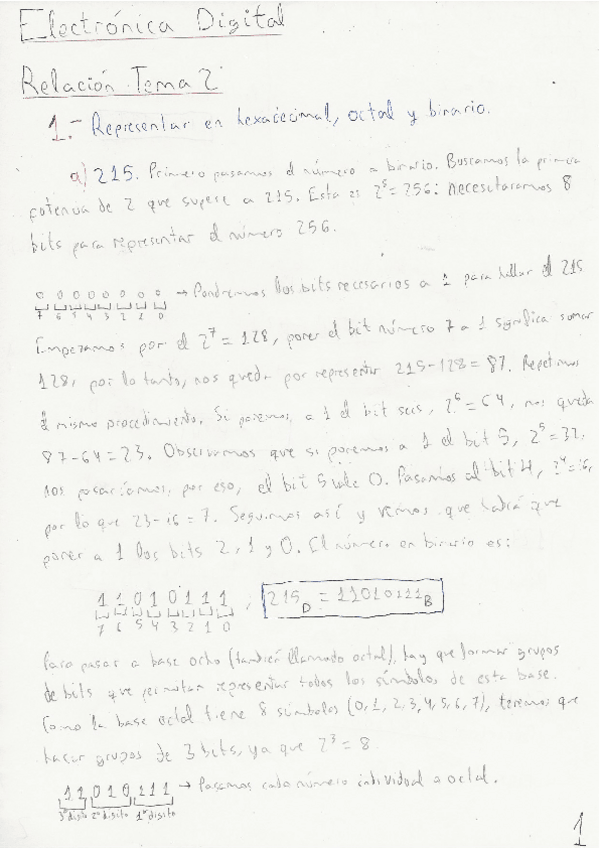 Electrónica Digital
Relación Tema 2
1.- Representar en hexadecimal, octal y binario.
a) 215. Primero pasamos el número a binario. Buscamos la primera
potencia de 2 que supere a 215. Esta es 2⁸ = 256: necesitaremos 8
bits para representar el número 256.
0 0 0 0 0 0 0 0 → Pondremos los bits necesarios a 1 para hallar el 215
7 6 5 4 3 2 1 0
Empezamos por el 2⁷ = 128, poner el bit número 7 a 1 significa sumar
128, por lo tanto, nos queda por representar 215-128 = 87. Repetimos
el mismo procedimiento. Si ponemos a 1 el bit seis, 2⁶ = 64, nos queda
87-64 = 23. Observamos que si ponemos a 1 el bit 5, 2⁵ = 32,
nos pasaríamos, por eso, el bit 5 vale 0. Pasamos al bit 4, 2⁴ = 16,
por lo que 23-16 = 7. Seguimos así y vemos que habrá que
poner a 1 los bits 2, 1 y 0. El número en binario es:
1 1 0 1 0 1 1 1 , 215D = 11010111B
7 6 5 4 3 2 1 0
Para pasar a base ocho (también llamado octal), hay que formar grupos
de bits que permitan representar todos los símbolos de esta base.
Como la base octal tiene 8 símbolos (0, 1, 2, 3, 4, 5, 6, 7), tenemos que
hacer grupos de 3 bits, ya que 2³ = 8
11 010 111 → Pasamos cada número individual a octal.
3er digito 2º digito 1er digito
1